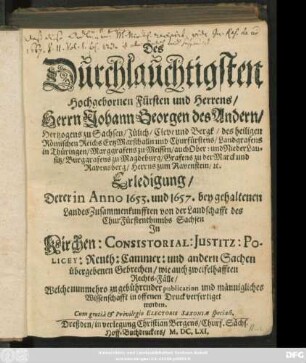 Des
Durchlauchtigsten
Hochgebornen Fürsten und Herrens/
Herrn Johann Georgen des Andern/
Hertzogens zu Sachsen/ Jülich/ Clev und Bergk/ des heiligen
Römischen Reichs ErtzMarschalln und Churfürstens/ Landgrafens
in Thüringen/ Marggrafens zu Meissen/ auch Ober- und Nieder Lau-
sitz/ Burggrafens zu Magdeburg/ Grafens zu der Marck und
Ravensberg/ Herrns zum Ravenstein/ ꝛc.
Erledigung/
Derer in Anno 1653. und 1657. bey gehaltenen
Landes Zusammenkunfften von der Landschafft des
Chur Fürstenthumbs Sachsen
In
Kirchen: CONSISTORIAL: JUSTITZ: PO-
LICEY: Renth: Cammer: und andern Sachen
übergebenen Gebrechen/ wie auch zweifelhafften
Rechts-Fälle/
Welche nunmehro zu gebührender publication und männigliches
Wissenschafft in offenen Druck verfertiget
worden.
Cum gratiâ & Privilegio ELECTORIS SAXONIÆ speciali,
Dreßden/ in verlegung Christian Bergens/ Churf. Sächs.
Hoff-Buchdruckers/ M. DC. LXI.